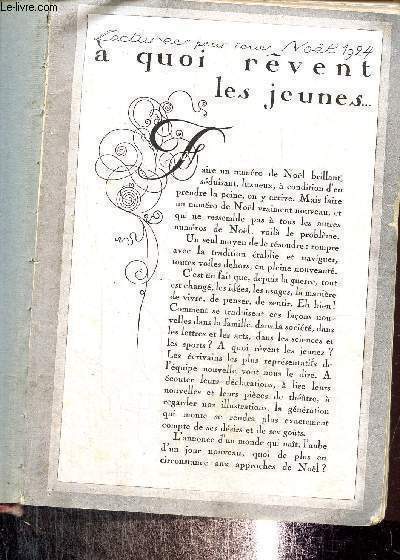 le-livre.com
Lectures pour tous _ Noël 1924
a quoi rêvent
les jeunes...
Faire un numéro de Noël brillant,
séduisant, luxueux, à condition d'en
prendre la peine, on y arrive. Mais faire
un numéro de Noël vraiment nouveau, et
qui ne ressemble pas à tous les autres
numéros de Noël, voilà le problème.
Un seul moyen de le résoudre : rompre
avec la tradition établie et naviguer,
toutes voiles dehors, en pleine nouveauté.
C'est un fait que, depuis la guerre, tout
est changé, les idées, les usages, la manière
de vivre, de penser, de sentir. Eh bien !
Comment se traduisent ces façons nou-
velles dans la famille, dans la société, dans
les lettres et les arts, dans les sciences et
les sports ? A quoi rêvent les jeunes ?
Les écrivains les plus représentatifs de
l'équipe nouvelle vont nous le dire. A
écouter leurs déclarations, à lire leurs
nouvelles et leurs pièces de théâtre, à
regarder nos illustrations, la génération
qui monte se rendra plus exactement
compte de ses désirs et de ses goûts.
L'annonce d'un monde qui naît, l'aube
d'un jour nouveau, quoi de plus en
circonstance aux approches de Noël ?